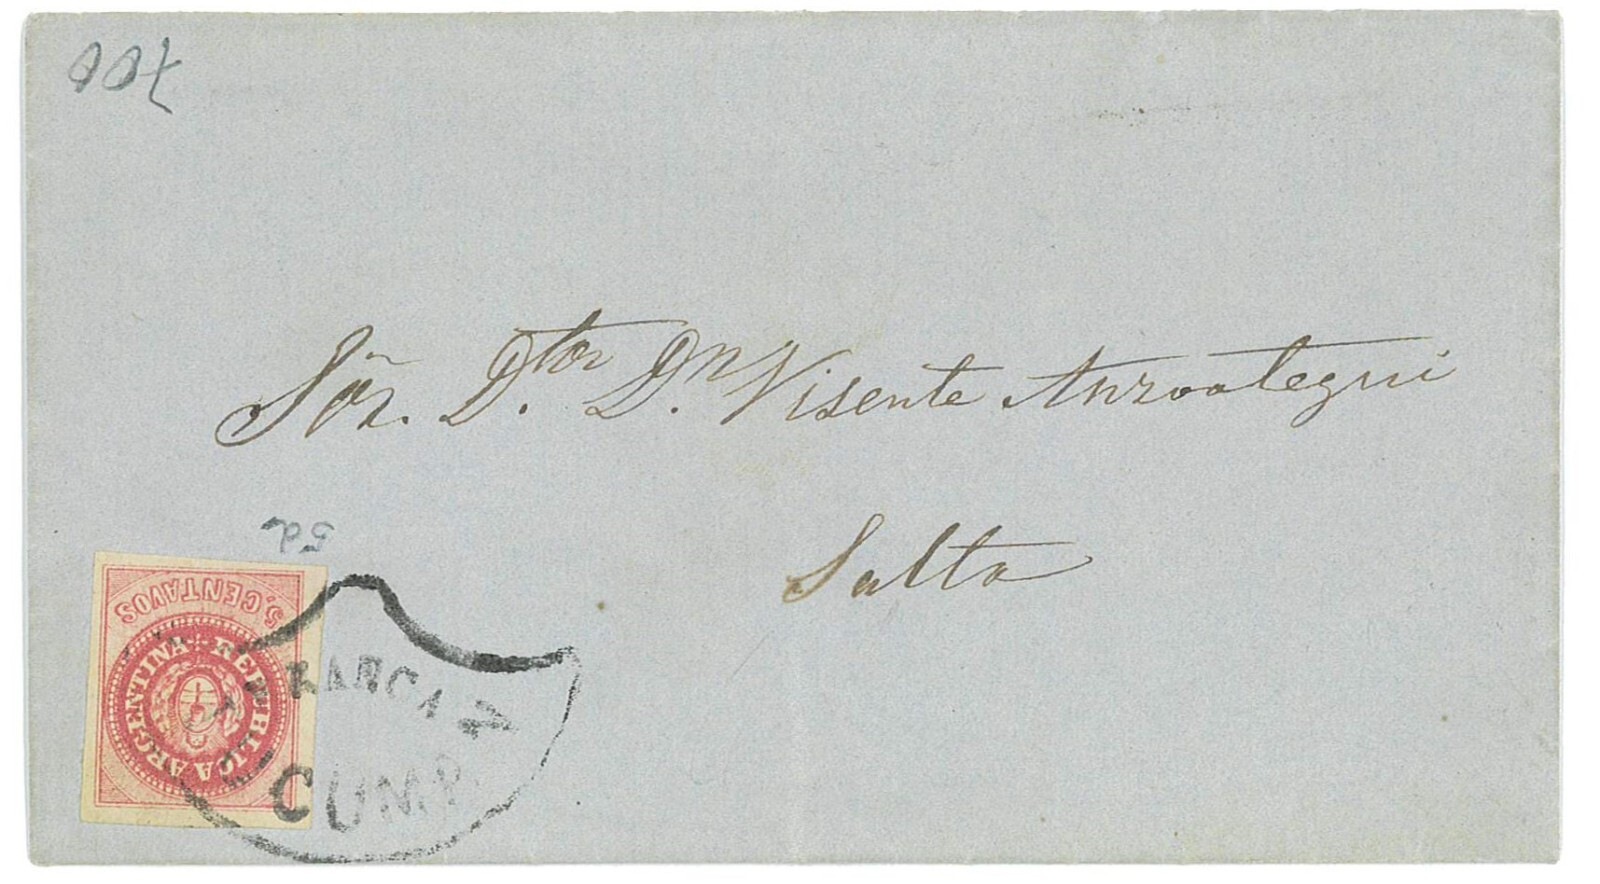 700
Sör. D.tor D.n Visente Anzoategui
Salta
5d
5. CENTAVOS
REPUBLICA ARGENTINA
FRANCA
CUMP.